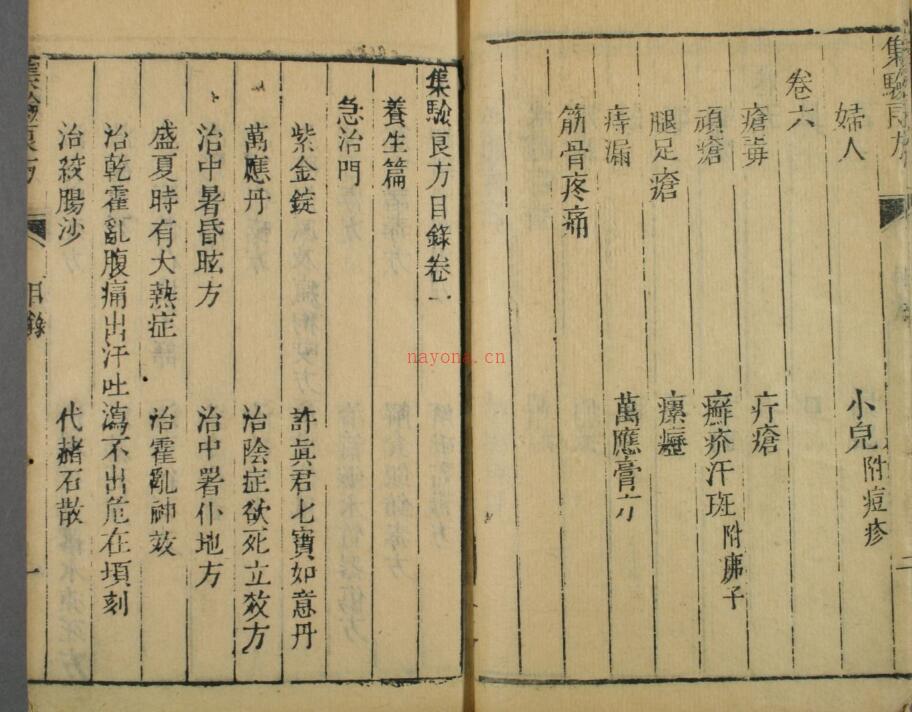 集驗良方
婦人 小兒附痘疹
卷六
瘡毒 疔瘡
頑瘡 癬疥汗斑附痱子
腿足瘡 瘰癧
痔漏 萬應膏方
筋骨疼痛
二
集驗良方目錄卷一
養生篇
急治門
紫金錠 許真君七寶如意丹
萬應丹 治陰症欲死立效方
治中暑昏眩方 治中署仆地方
盛夏時有大熱症 治霍亂神效
治乾霍亂腹痛出汗吐瀉不出危在頃刻
治絞腸沙 代赭石散
集驗良方
目錄
一
nayona.cn